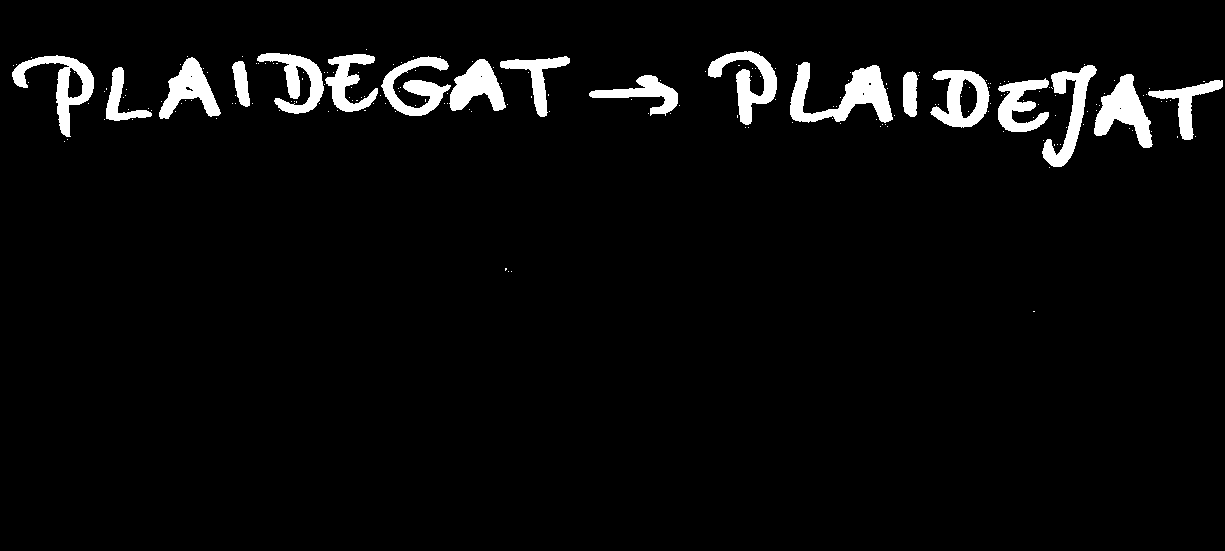 PLAIDEGAT → PLAIDEJAT